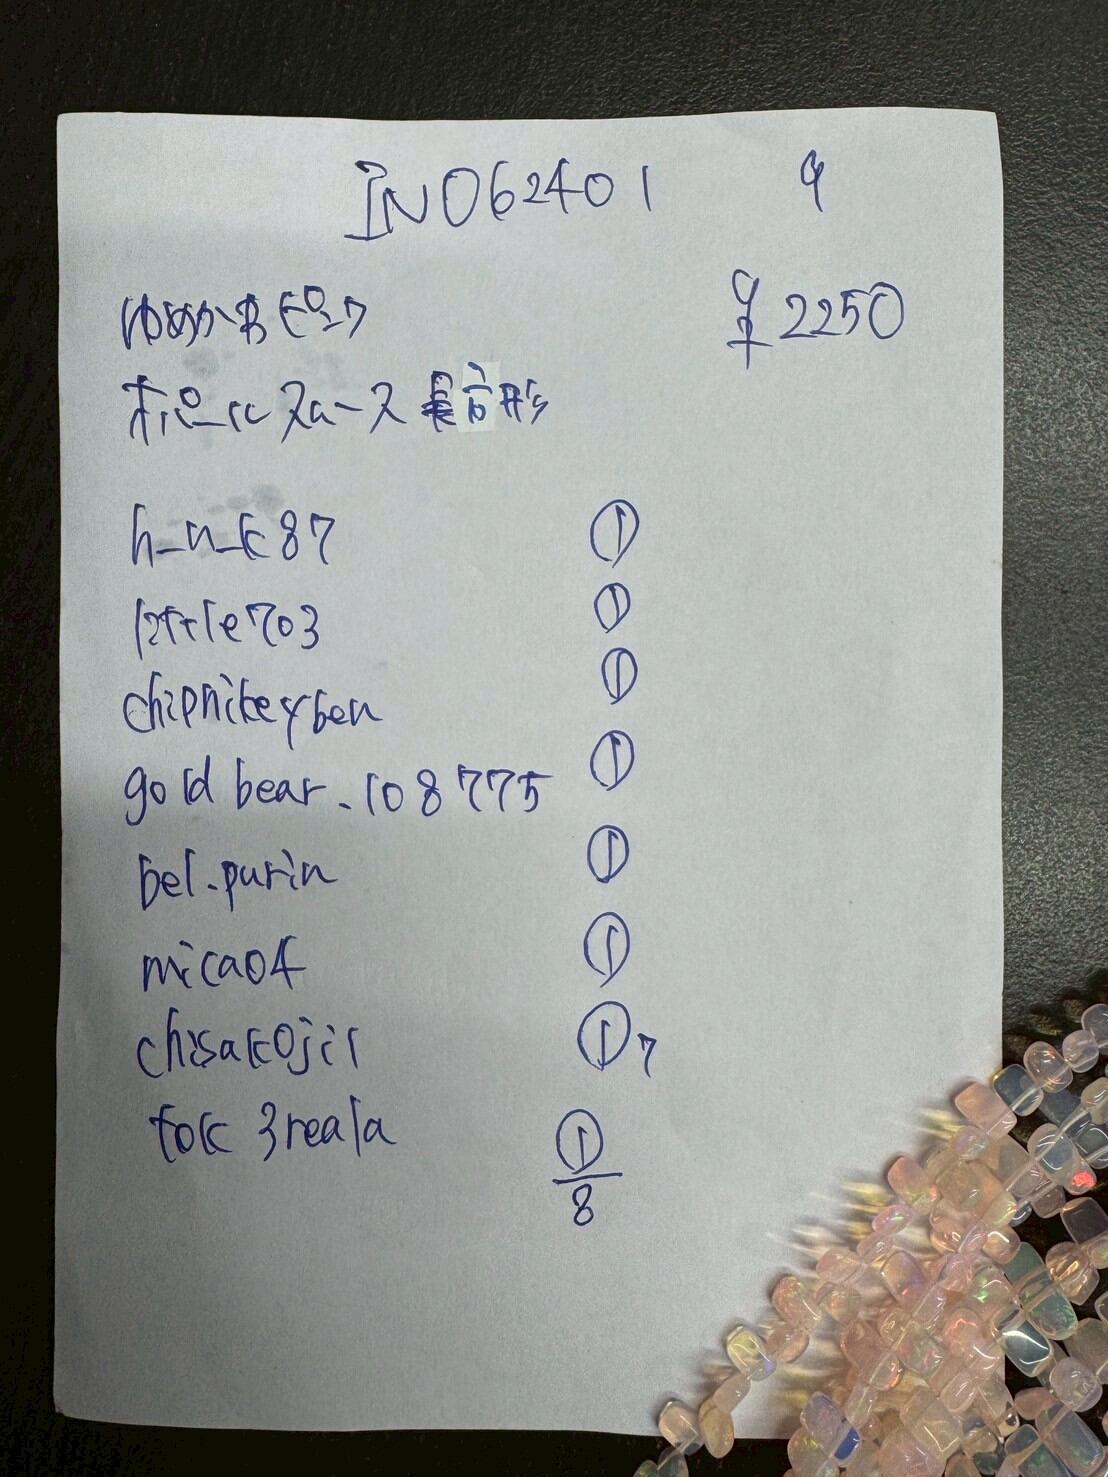 IN062401 9
ゆめかわピンク ¥2250
オパール スムース 長方形
h_n_k87 ①
little703 ①
chipnikeyben ①
goldbear.108775 ①
bel.purin ①
mica04 ①
chisakojil ① 7
tok3reala ①
8